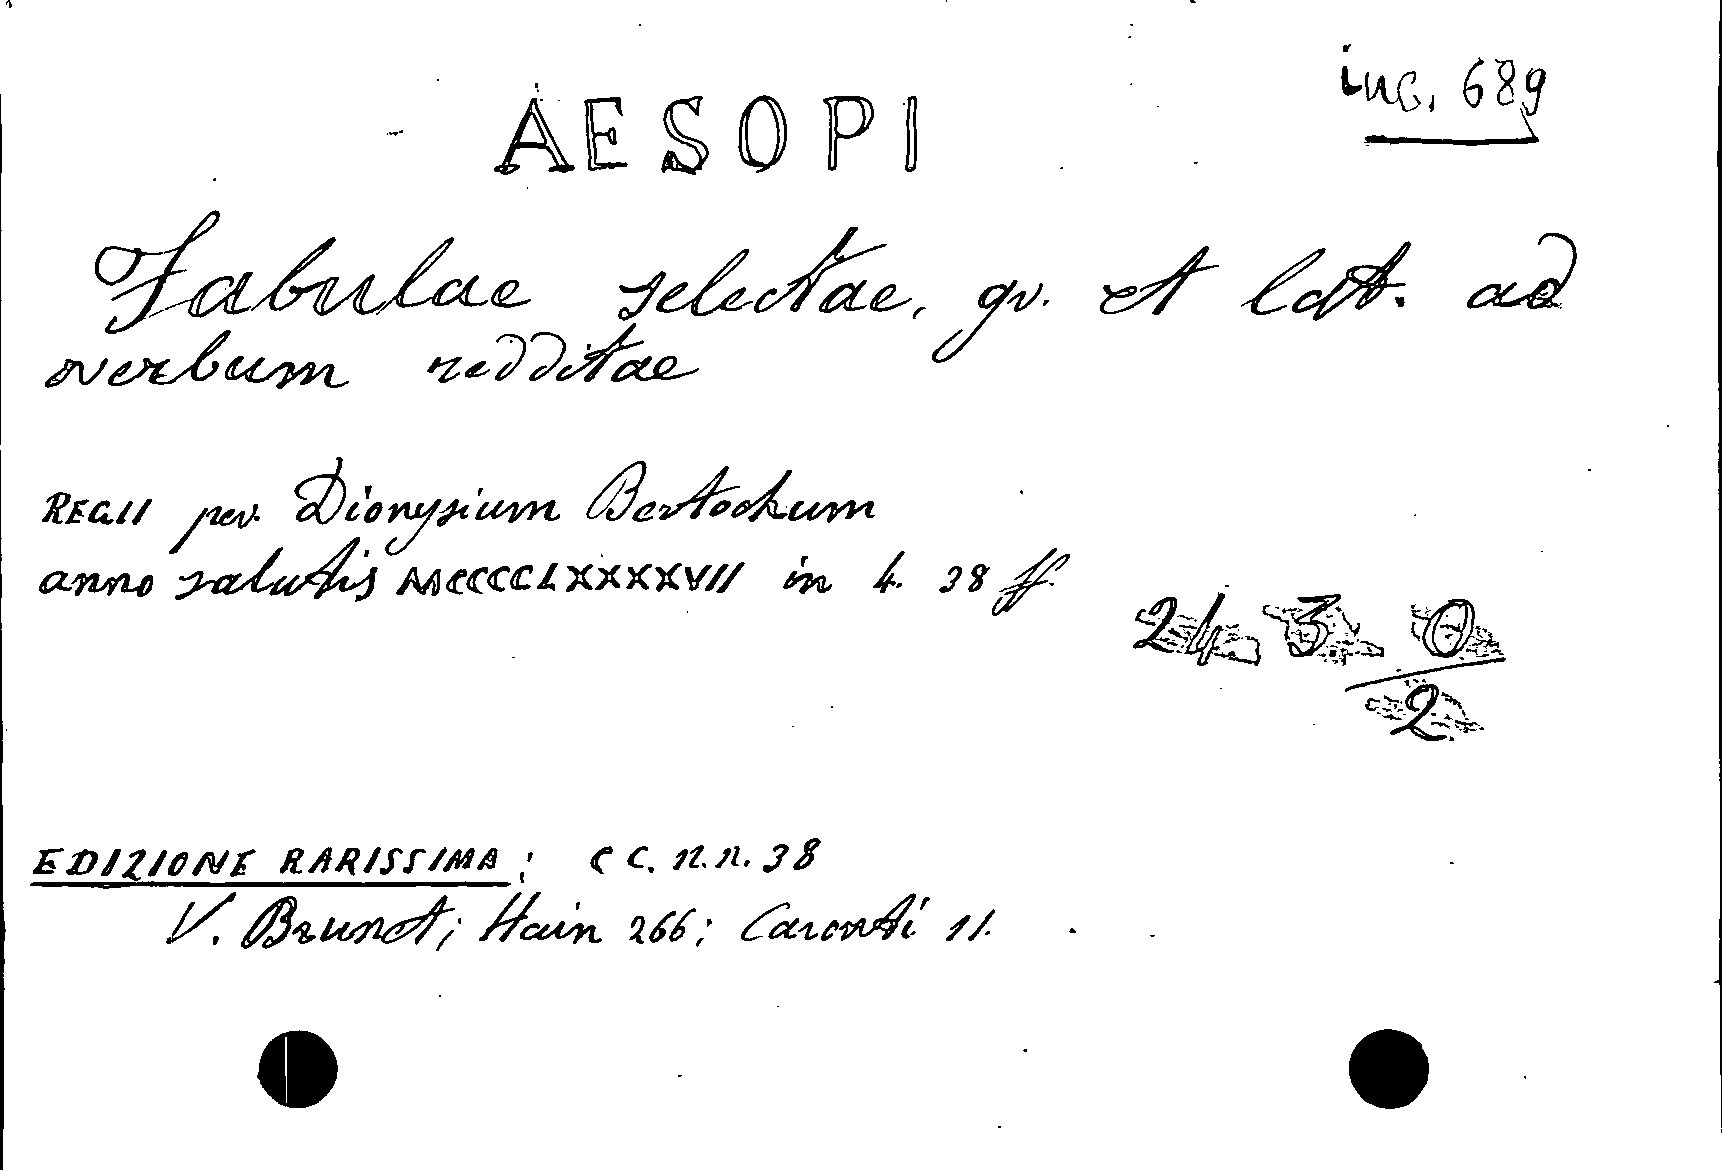 inc. 689
AESOPI
Fabulae selectae, gr. et lat. ad
verbum redditae
REGII per Dionysium Bertochum
anno salutis MCCCCLXXXXVII in 4. 38 ff.
24. 3. 0
2
EDIZIONE RARISSIMA; CC. n.n. 38
V. Brunet; Hain 266; Caronti 11.